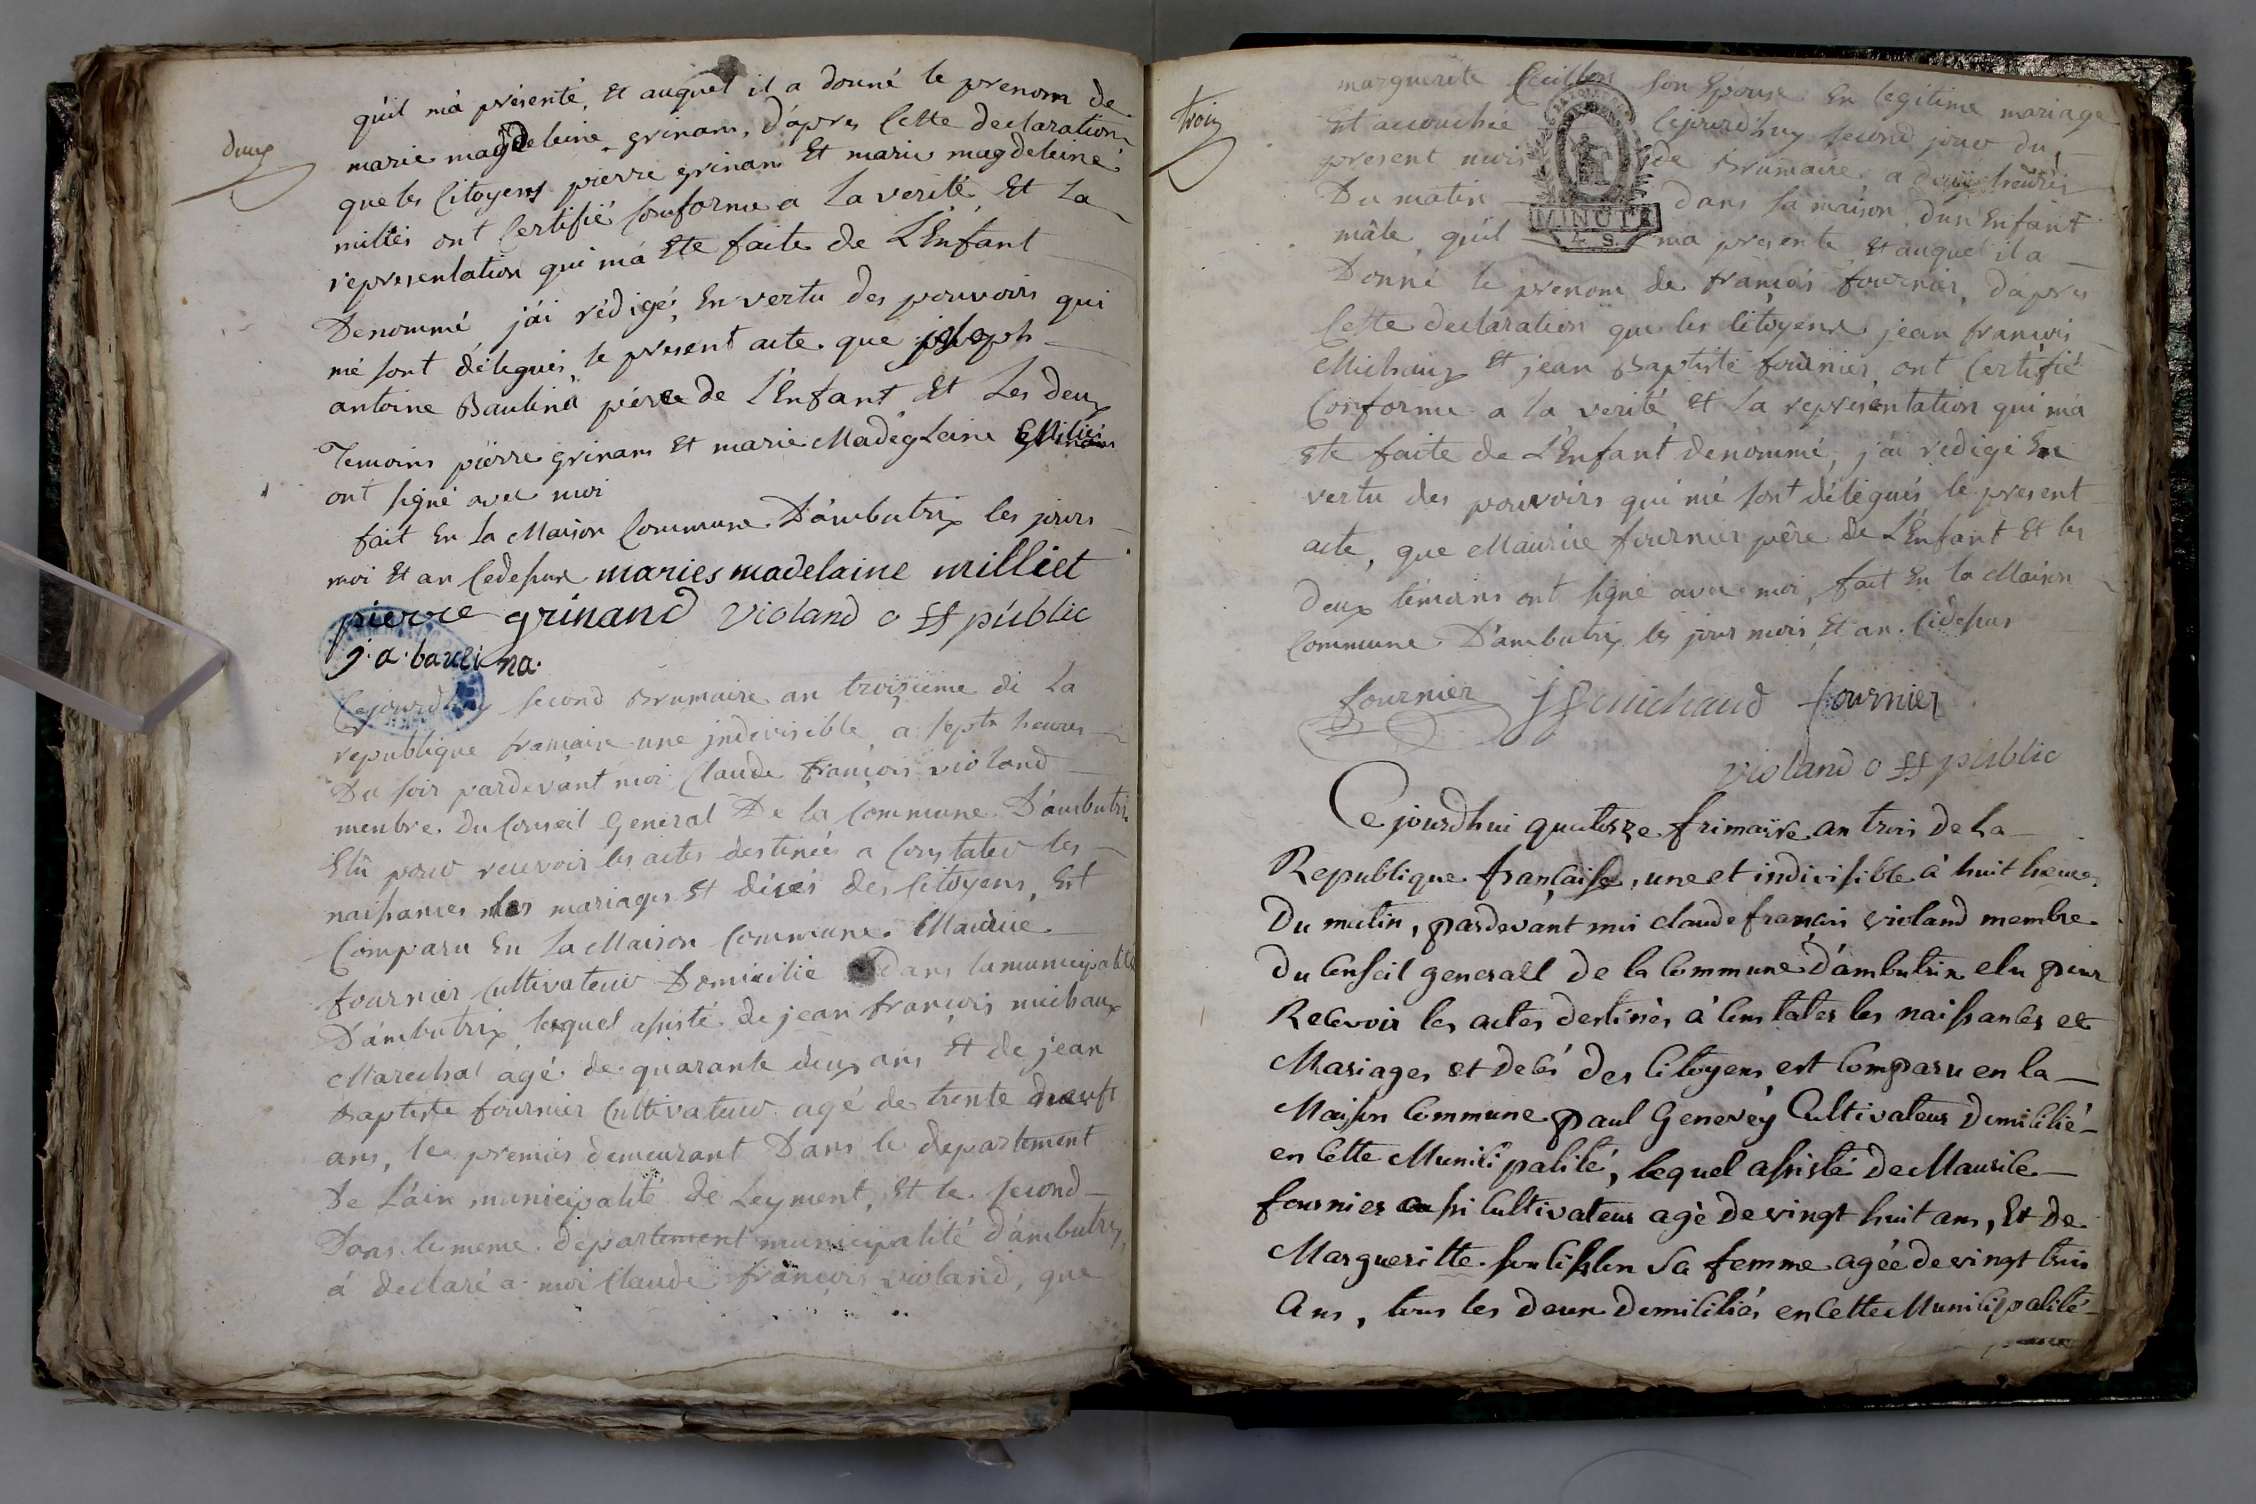 deux
qu'il m'a présenté, Et auquel il a donné le prenom de
marie magdeleine grinam, d'apres Cette declaration
que les Citoyens pierre grinam Et marie magdeleine
milliés ont Certifié conforme a la verité, Et La
representation qui m'a Ete faite de L'Enfant
Denommé j'ai rédigé, En vertu des pouvoirs qui
mé sont délegués, le present acte que joseph
antoine Baulina pére de L'Enfant Et Les deux
Temoins piérre grinam Et marie Madégleine
ont signé avec moi
fait En La Maison Commune D'ambutrix les jours
moi Et an Cedessus maries madelaine milliet
pierre grinand violand o ff públic
j. a. baulina.
Cejourd'huy second Brumaire an troiziéme di La
republique francaise une indivisible, a sept heures
Du soir pardevant moi Claude francois violand
menbre Du Conseil General De la Commune D'ambutrix
Elû pour recevoir les actes destineés a Constater les
naissances les mariages Et décés des Citoyens, Est
Comparu En La Maison Commune Maurice
fournier Cultivateur Domicilié dans la municipalité
D'ambutrix, lequel assisté de jean francois michaux
Marechal agé de quarante deux ans Et de jean
Baptiste fournier Cultivateur agé de trente neuf
ans, le premier demeurant Dans le departement
De L'ain municipalité de Leyment, Et le second
Dans le meme departement municipalité d'ambutrix,
á declaré a moi Claude francois violand, que
trois
marguerite son Epouse En legitime mariage
Est accouchée Cejourd'huy second jour du
present mois de Brumaire a heures
Du matin dans sa maison d'un Enfant
mâle qu'il m'a presenté Et auquel il a
Donné le prenom de francois fournier, d'apres
Cette declaration que les Citoyens jean francois
Michaux Et jean Baptiste fournier, ont Certifié
Conforme a la verité Et La representation qui m'a
Ete faite de L'Enfant denommé, j'ai redigé En
vertu des pouvoirs qui mé sont délégués le present
acte, que Maurice fournier pére de L'Enfant Et les
deux témoins ont signé avec moi, fait En la Maison
Commune D'ambutrix les jour mois Et an Cidessus
fournier jf michaud fournier
violand o ff públic
MINUTE
Ce jourdhui quatorze frimaire an trois de La
Republique française, une et indivisible à huit heures
Du matin, pardevant moi claude francois violand membre
Du Conseil generall de la Commune d'ambutrix elu pour
Recevoir les actes destinés à Constater les naissances et
Mariages et Decés des Citoyens est Comparu en la
Maison Commune paul Genevéy Cultivateur Domicilié
en Cette Municipalité, lequel assisté de Maurice
fournier aussi Cultivateur agé de vingt huit ans, Et de
Margueritte Sa femme agée de vingt trois
Ans, tous les deux Domiciliés en Cette Municipalité